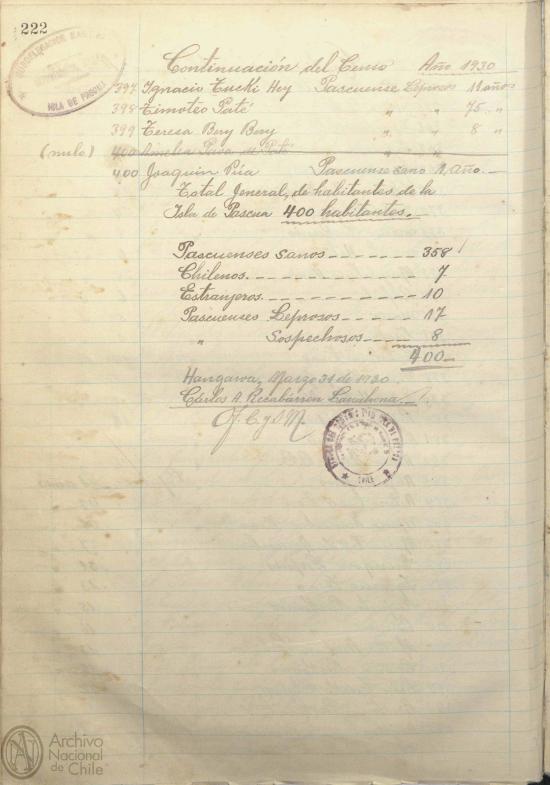 222
ISLA DE PASCUA
Continuación del Censo Año 1930
397 Ignacio Tucki Hey Pascuense Leproso 11 años
398 Timoteo Paté " " 75 "
399 Teresa Bery Bery " " 8 "
(nulo) 400 Amelia de Paté " "
400 Joaquín Púa Pascuense sano 1 Año.
Total General, de habitantes de la
Isla de Pascua 400 habitantes.
Pascuenses sanos - - - - - - - 358
Chilenos. - - - - - - - - - - - 7
Estranjeros. - - - - - - - - - 10
Pascuenses Leprosos - - - - - 17
" Sospechosos - - - - 8
400 -
Hangaroa, Marzo 31 de 1930
Carlos A. Recabárren
CHILE
Archivo
Nacional
de Chile